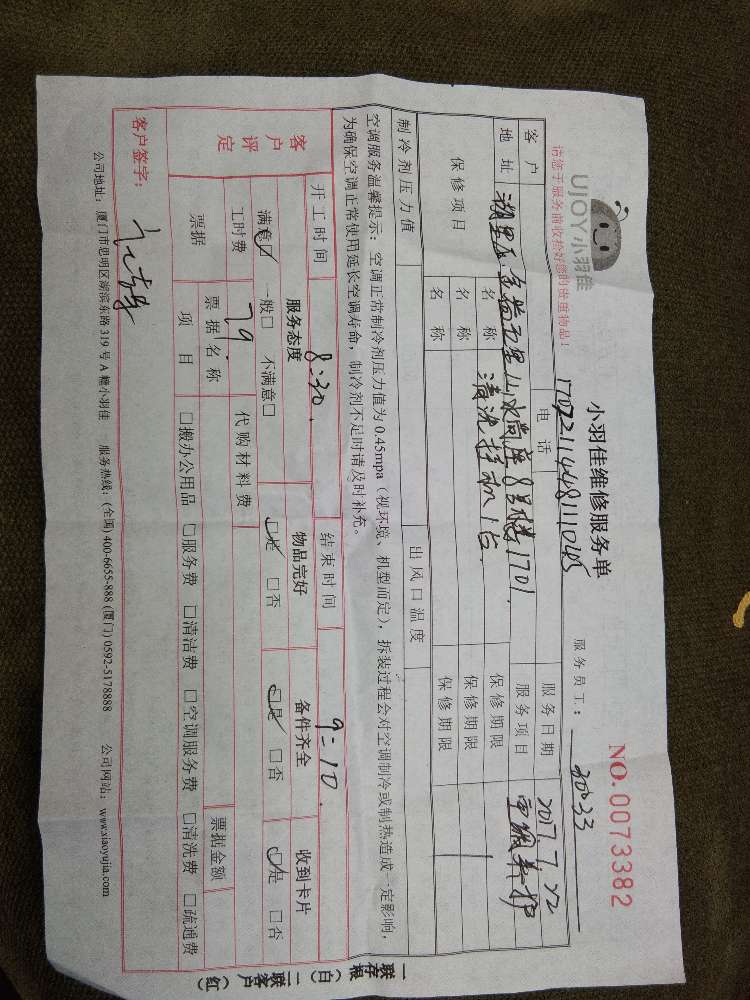 UJOY小羽佳
小羽佳维修服务单
NO.0073382
请您于服务前收拾好您的贵重物品!
1707211448111045
服务员工: 30033
客户 电话 服务日期 2017 7 22
地址 湖里区 金海五里山水尚座8号楼1701. 服务项目 家电养护
保修项目 名称 清洗挂机1台 保修期限
名称 保修期限
名称 保修期限
制冷剂压力值 出风口温度
空调服务温馨提示:空调正常制冷剂压力值为0.45mpa(视环境、机型而定),拆装过程会对空调制冷或制热造成一定影响,
为确保空调正常使用延长空调寿命,制冷剂不足时请及时补充。
开工时间 8:30. 结束时间 9:10.
客户评定 服务态度 物品完好 备件齐全 收到卡片
满意☑ 一般□ 不满意□ ☑是 □否 ☑是 □否 ☑是 □否
工时费 79 代购材料费
票据 票据名称 票据金额
项目 □搬办公用品 □服务费 □清洁费 □空调服务费 □清洗费 □疏通费
客户签字:
公司地址:厦门市思明区湖滨东路319号A幢小羽佳 服务热线:(全国)400-6655-888 (厦门)0592-5178888 公司网站:www.xiaoyujia.com
一联存根(白) 二联客户(红)